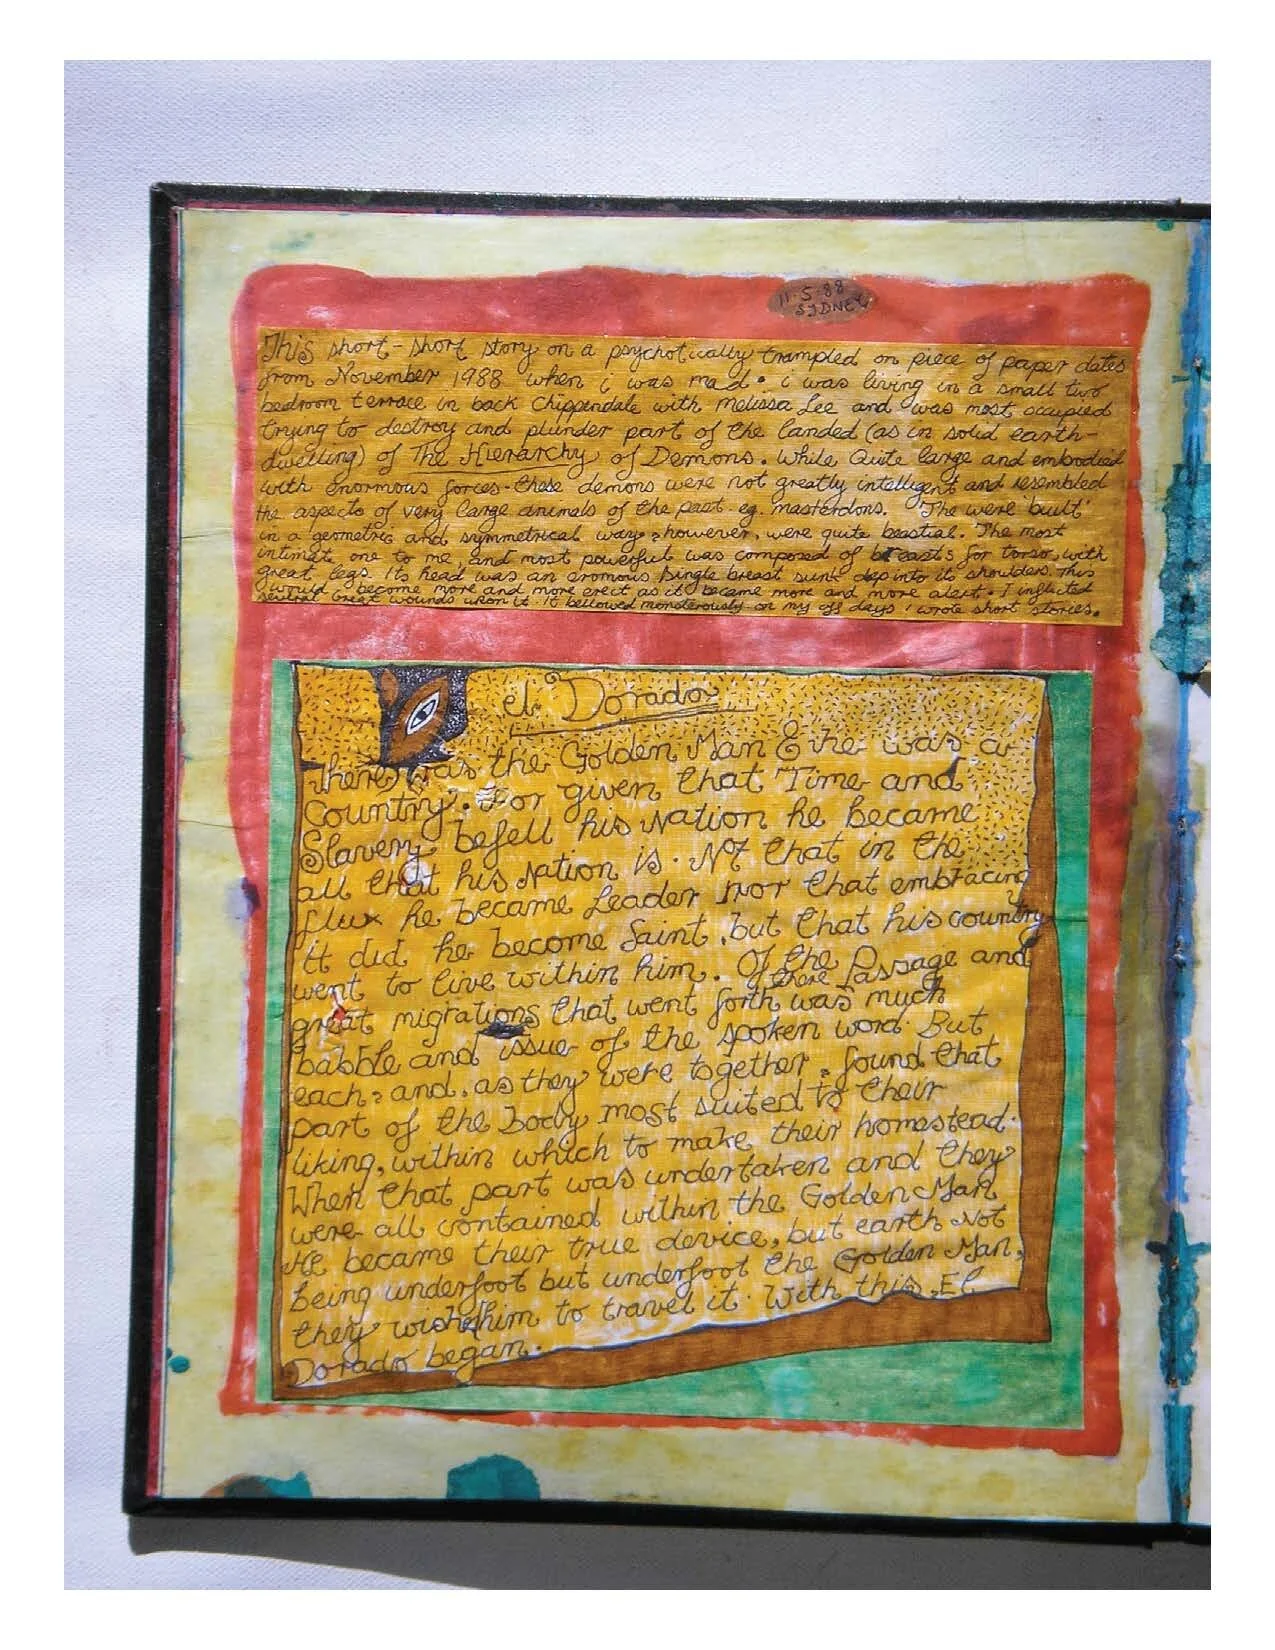 11·5·88
SYDNEY
This short-short story on a psychotically trampled on piece of paper dates
from November 1988 when i was mad. i was living in a small two
bedroom terrace in back Chippendale with Melissa Lee and was most occupied
trying to destroy and plunder part of the landed (as in solid earth-
dwelling) of The Hierarchy of Demons. While Quite large and embodied
with enormous forces - these demons were not greatly intelligent and resembled
the aspects of very large animals of the past. eg. masterdons. The were 'built'
in a geometric and symmetrical way, however, were quite beastial. The most
intimate one to me, and most powerful was composed of breasts for torso, with
great legs. Its head was an eromous single breast sunk dep into its shoulders. This
would become more and more erect as it became more and more alert. I inflicted
several great wounds upon it. It bellowed monderously. on my off days i wrote short stories.
el Dorado
There was the Golden Man & he was a
Country. For given that Time and
Slavery befell his Nation he became
all that his Nation is. Not that in the
flux he became Leader nor that embracing
it did he become Saint, but that his country
went to live within him. Of the Passage and
great migrations that went forth there was much
babble and issue of the spoken word. But
each, and, as they were together, found that
part of the body most suited to their
liking, within which to make their homestead.
When that part was undertaken and they
were all contained within the Golden Man
He became their true device, but earth Not
being underfoot but underfoot the Golden Man,
they wished him to travel it. With this, El
Dorado began.